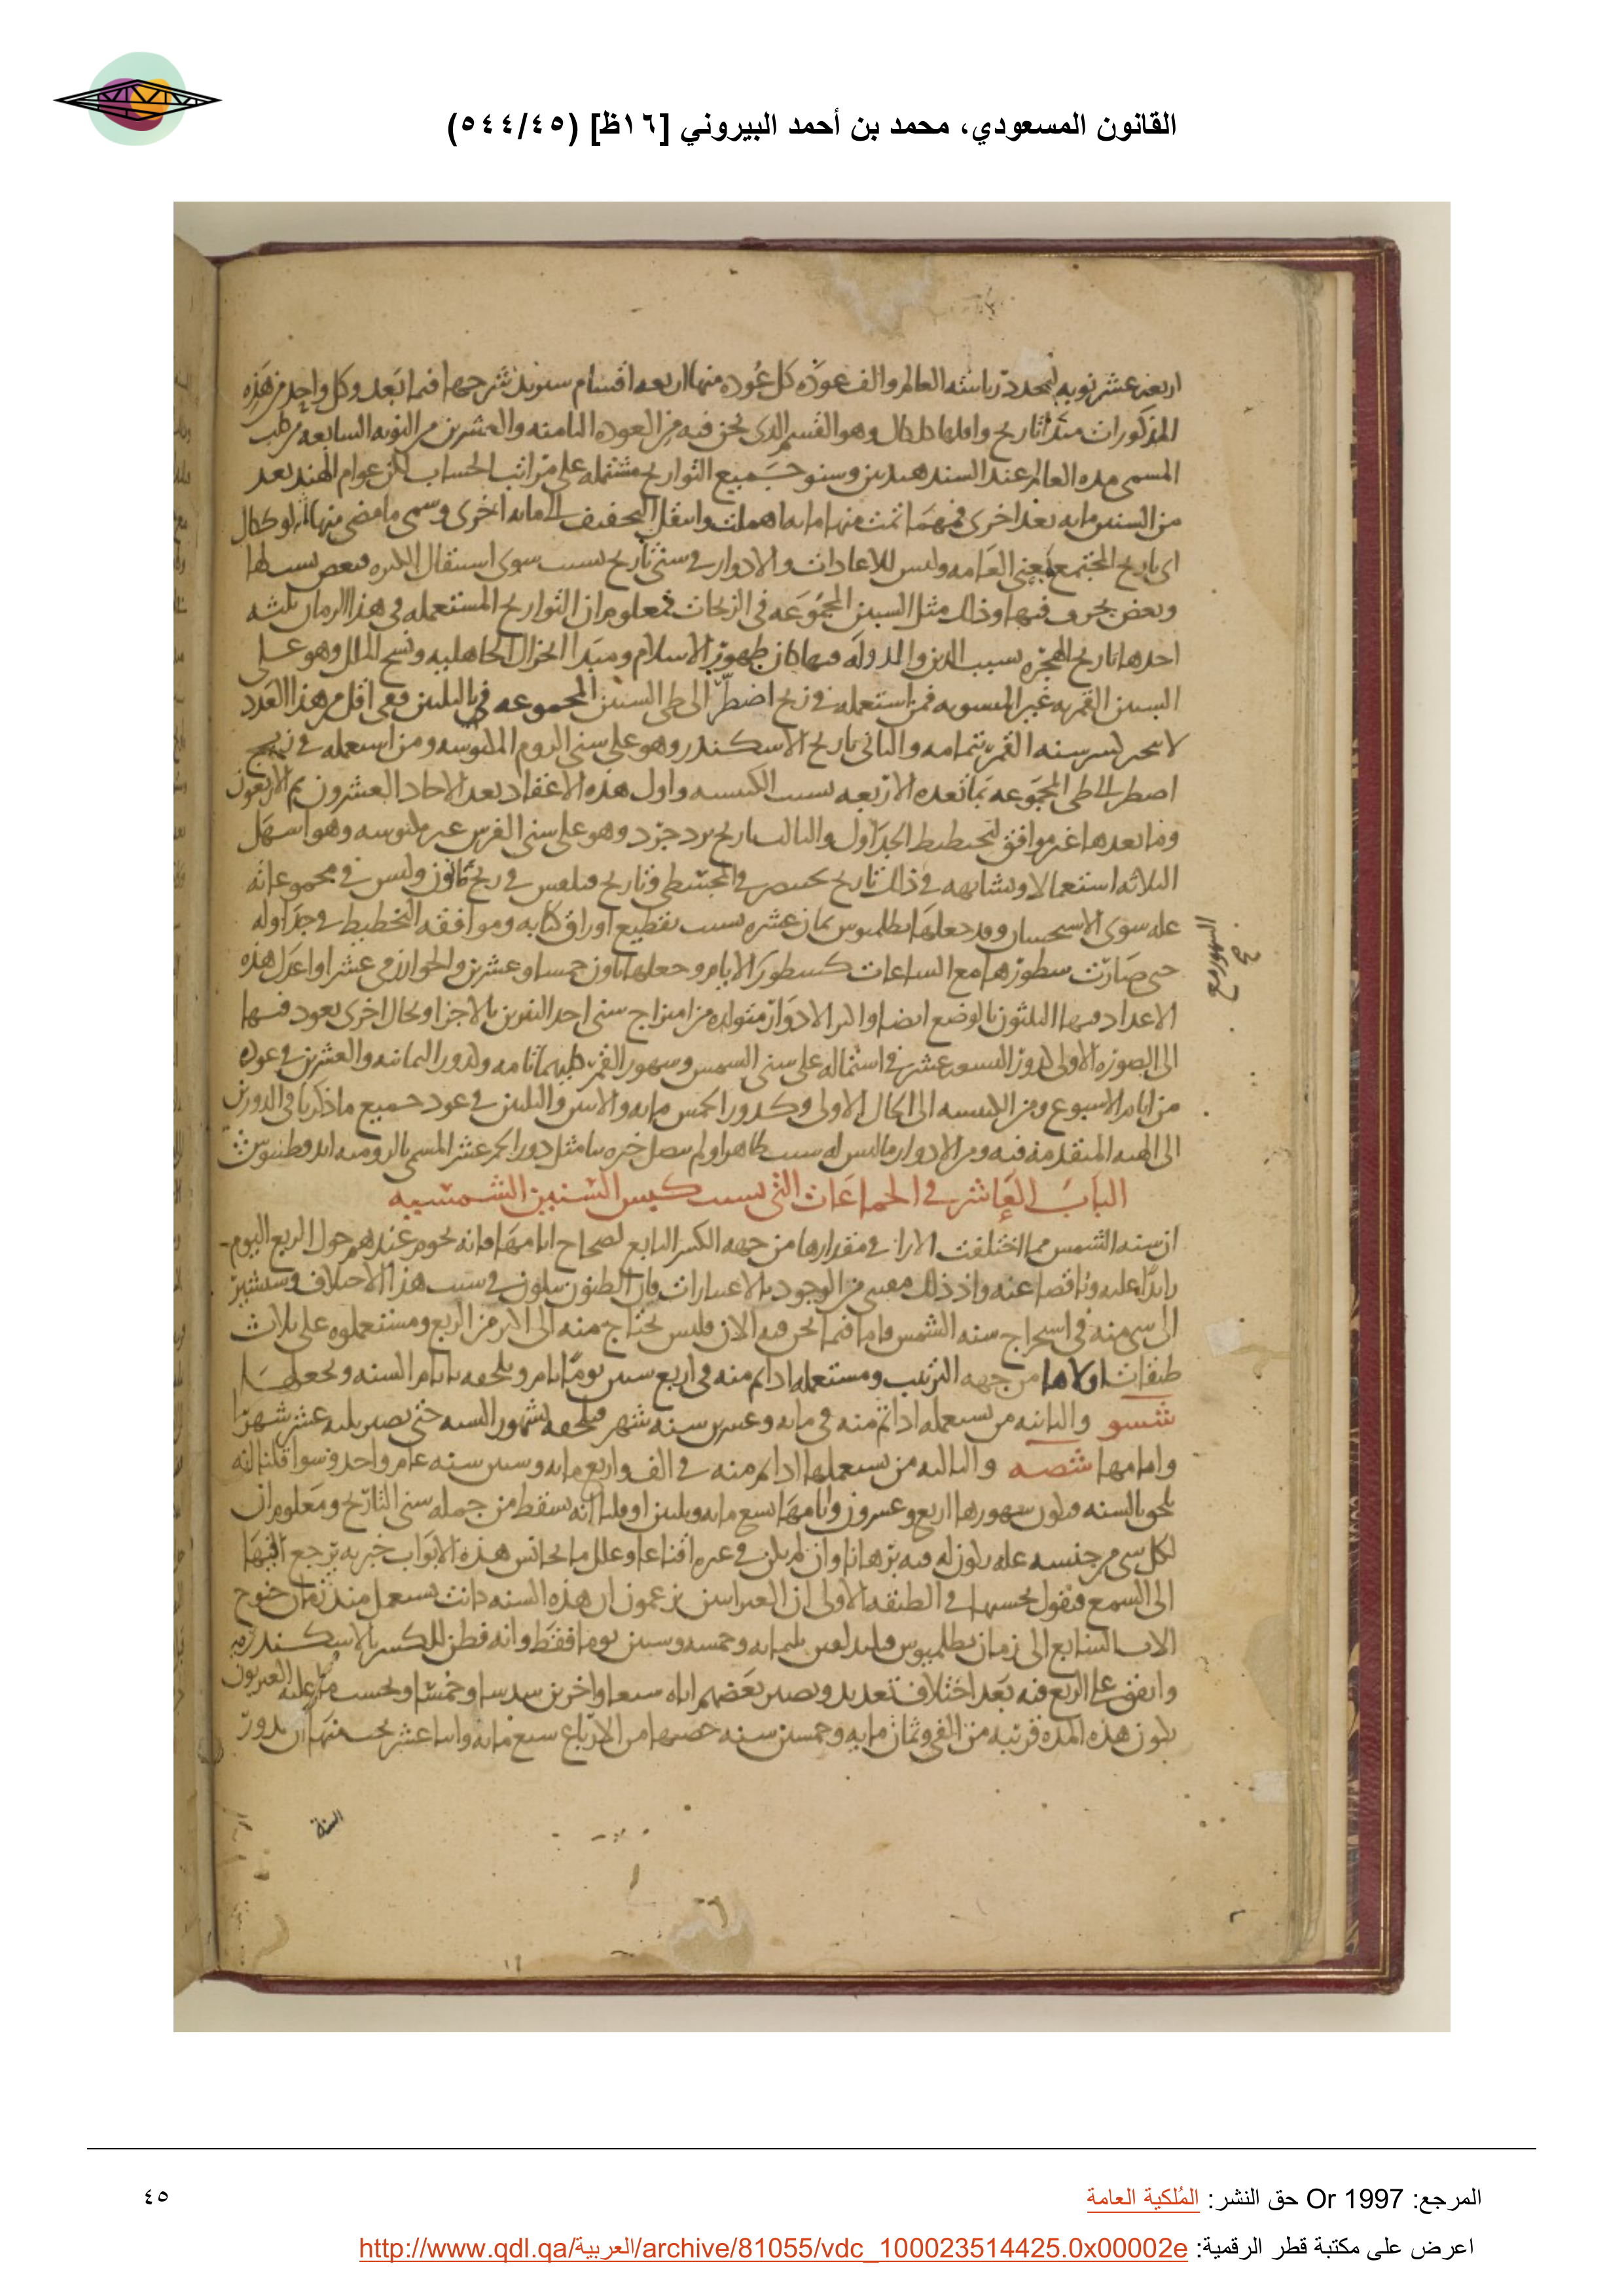 القانون المسعودي، محمد بن أحمد البيروني [١٦ظ] (٥٤٤/٤٥)
اربعة عشر نوبه لتجدد رياسته العالم والف عوده كل عوده منها اربعه اقسام سوف نشرحها فيما بعد وكل واحد من هذه
المذكورات مبدا تاريخ واولها كلكال وهو القسم الذي نحن فيه من العوده الثامنه والعشرين من النوبه السابعه من
المسمى مده العالم عند السند هند وسنو جميع التواريخ مشتمله على مراتب الحساب لكن عوام الهند بعد
من السنين مايه بعد اخرى فمهما تمت منها مايه اهملت وانتقل التخفيف الى مايه اخرى وسمى ما مضى منها لوككال
اى تاريخ المجتمع يعنى العامه وليس للاعادات والادوار فى سنى تاريخ بسبب سوى استثقال الكثره
وبعض يجرى فيها وذلك مثل السنين المجموعه فى الزيجات فمعلوم ان التواريخ المستعمله فى هذا الزمان ثلثه
احدها تاريخ الهجره بسبب الدين والدوله فبها كان ظهور الاسلام ومبدا انخزال الجاهليه ونسخ الملل وهو على
السنين القمريه غير المنسويه فمن استعمله فى زيج اضطر الى طى السنين المجموعه فى بالثلثين ففى اقل من هذا العدد
لا ينجبر كسر سنه القمر بتمامه والثانى تاريخ الاسكندر وهو على سنى الروم المكبوسه ومن استعمله فى زيج
اضطر الى طى المجموعه بما تعده الاربعه بسبب الكبيسه واول هذه الاعداد بعد الاحاد العشرون ثم الاربعون
وما بعدها غير موافق لتخطيط الجداول والثالث تاريخ يزدجرد وهو على سنى الفرس غير مكبوسه وهو اسهل
الثلاثه استعمالا ويشابهه فى ذلك تاريخ بختنصر فى المجسطى وتاريخ فيلفس فى زيج ثاون وليس فى مجموعاته
عله سوى الاستحسان وقد جعلها بطلميوس ثمان عشره بسبب تقطيع اوراق كتابه وموافقه التخطيط فى جداوله
حتى صارت سطورها مع الساعات كسطور الايام وجعلها ثاون خمسا وعشرين والخوارزمى عشرا واعدل هذه
الاعداد فيها الثلثون بالوضع ايضا واكثر الادوار متولده من امتزاج سنى احد النيرين بالاجزا وبحال اخرى يعود فيها
الى الصوره الاولى كدور التسعه عشر فى اشتماله على سنى الشمس وشهور القمر كليهما تامه وكدور الثمانيه والعشرين فى عوده
من ايام الاسبوع ومن الكبيسه الى الحال الاولى وكدور الخمس مايه والاثنين والثلثين فى عود جميع ما ذكرنا فى الدورين
الى الهيه المتقدمه فيه ومن الادوار ما ليس له سبب ظاهر او لم يصل خبره بنا مثل دور الخمسه عشر المسمى بالروميه اندقطيوس
الباب العاشر فى الجماعات التى بسبب كبس السنين الشمسيه
ان سنه الشمس مما اختلفت الارا فى مقدارها من جهه الكسر التابع لصحاح ايامها فانه نحوم عندهم حول الربع اليوم
زايدا عليه وناقصا عنه واذ ذلك مقتبس من الوجود بالاعتبارات فان الظنون تتلون فى سبب هذا الاختلاف وسنشير
الى شى منه فى استخراج سنه الشمس واما فيما نحن فيه الان فليس نحتاج منه الى اكثر من الربع ومستعملوه على ثلاث
طبقات اولاها من جهه الترتيب ومستعمله اذا تم منه فى اربع سنين يوما تاما ويلحقه بايام السنه ويجعلها
شسو والثانيه من يستعمله اذا تم منه فى مايه وعشرين سنه شهر فيلحقه بشهور السنه حتى تصير ثلثه عشر شهرا
وايامها شصه والثالثه من يستعملها اذا تم منه فى الف واربع مايه وستين سنه عام واحد وسوا قلنا انه
يلحق بالسنه فيكون شهورها اربع وعشرون وايامها سبع مايه وثلثين او قلنا انه يسقط من جمله سنى التاريخ ومعلوم ان
لكل شى من جنسه عله يكون له فيه برهانا وان لم يكن فى غيره اقناعا وعلل ما يجانس هذه الابواب خبريه يرجع فيها
الى السمع فنقول بحسبها فى الطبقه الاولى ان العبرانيين يزعمون ان هذه السنه كانت تستعمل منذ زمان خنوخ
الاب السابع الى زمان بطلميوس فيلدلفس ثلثمايه وخمسه وستين يوما فقط وانه فطن للكسر بالاسكندريه
واتفق على الربع فيه بعد اختلاف شديد وتصيير بعضهم اياه سبعا واخرين سدسا وخمسا وبحسب ما عليه العبريون
يكون هذه المده قريبه من الفى وثمان مايه وخمسين سنه حصتها من الارباع سبع مايه واثنا عشر بحسبها ان يدور
السنة
المرجع: Or 1997 حق النشر: المُلكية العامة
٤٥
اعرض على مكتبة قطر الرقمية: http://www.qdl.qa/العربية/archive/81055/vdc_100023514425.0x00002e